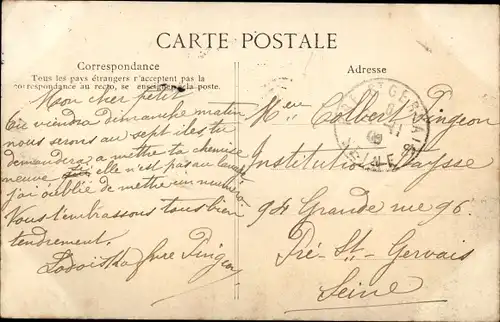 CARTE POSTALE
Correspondance
Tous les pays étrangers n'acceptent pas la
correspondance au recto, se renseigner à la poste.
Adresse
Mon cher petit
tu viendra dimanche matin
nous serons au sept iles tu
demandera a mettre ta chemise
neuve elle n'est pas au
j'ai oublié de mettre un numéro.
Nous t'embrassons tous bien
tendrement.
Pingeon
Colbert Pingeon
Institution
94 Grande rue 96
Pré-St-Gervais
Seine
ST GERVA
09
SEINE